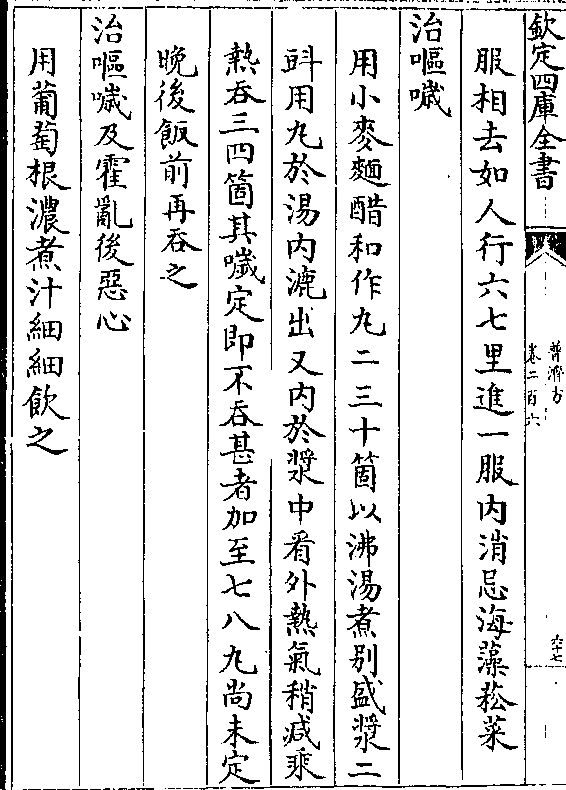 欽定四庫全書
普濟方
卷二百六
六十七
服相去如人行六七里進一服内消忌海藻菘菜
治嘔噦
用小麥麵醋和作九二三十箇以沸湯煮别盛漿二
㪷用九於湯内漉出又内於漿中看外熱氣稍減乘
熱吞三四箇其噦定即不吞甚者加至七八九尚未定
晚後飯前再吞之
治嘔噦及霍亂後惡心
用葡萄根濃煮汁細細飲之